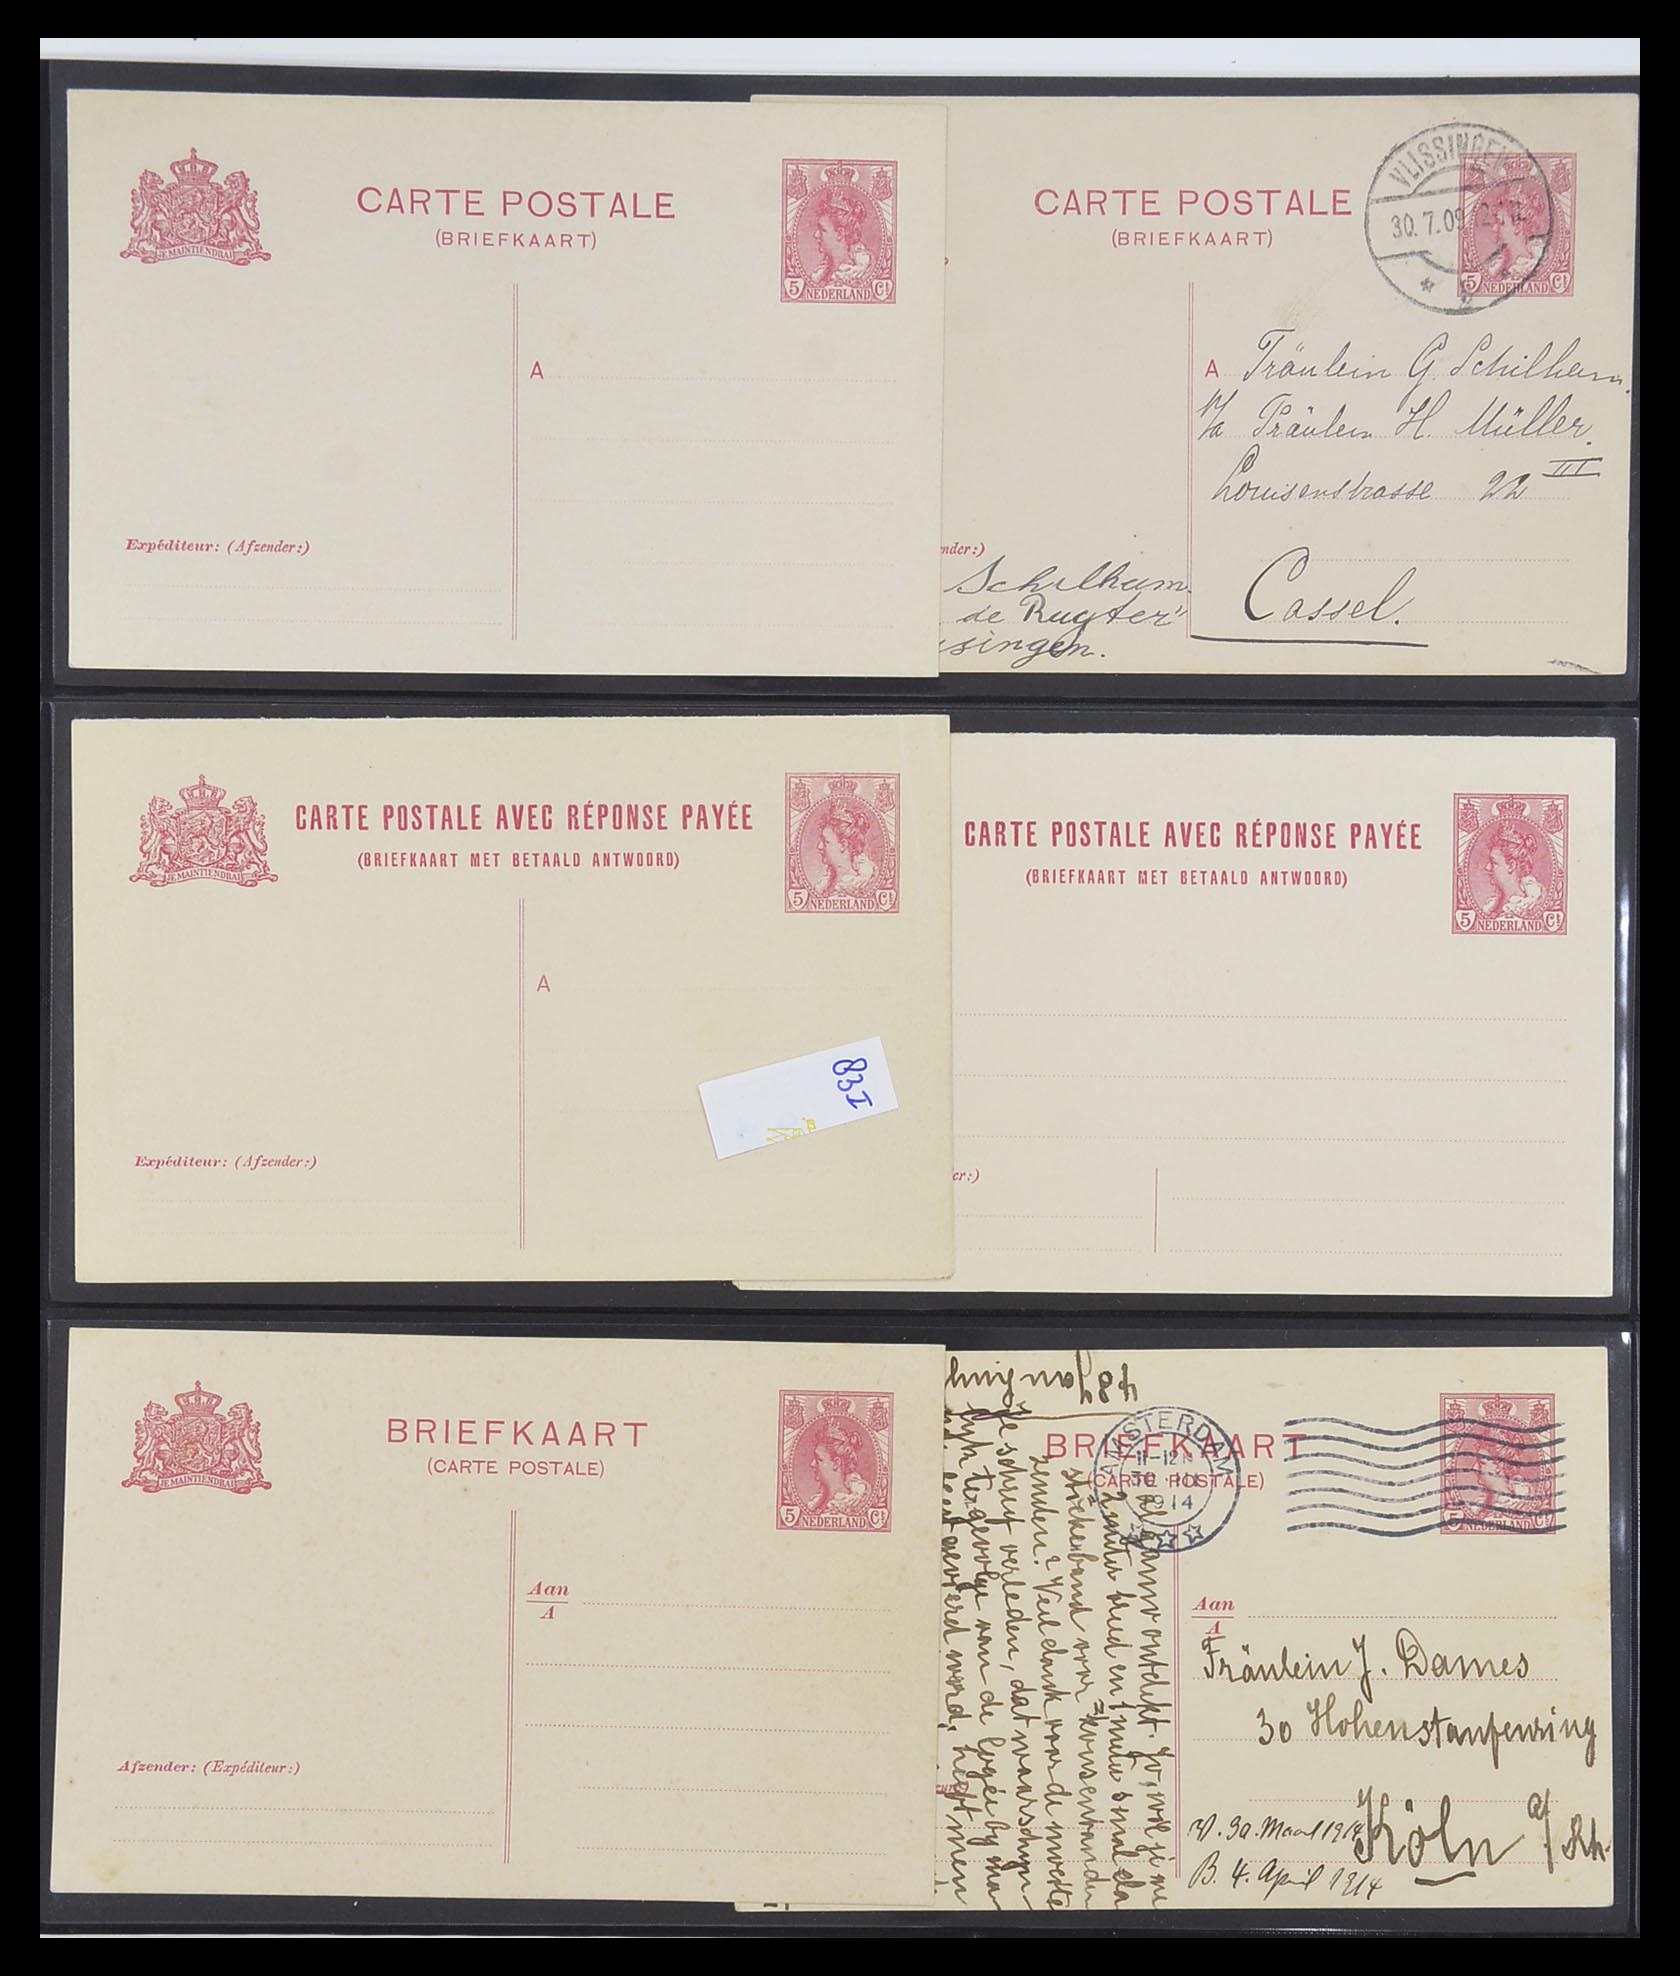 JE MAINTIENDRAI
CARTE POSTALE
(BRIEFKAART)
5 NEDERLAND Ct
A
Expéditeur: (Afzender:)
CARTE POSTALE
(BRIEFKAART)
VLISSINGEN
30.7.09
5 NEDERLAND Ct
A Fräulein G. Schilham.
p/a Fräulein H. Müller.
Louisenstrasse 22 III
Cassel.
nder:)
Schilham.
de Ruyter
ssingen.
JE MAINTIENDRAI
CARTE POSTALE AVEC RÉPONSE PAYÉE
(BRIEFKAART MET BETAALD ANTWOORD)
5 NEDERLAND Ct
A
83I
Expéditeur: (Afzender:)
CARTE POSTALE AVEC RÉPONSE PAYÉE
(BRIEFKAART MET BETAALD ANTWOORD)
5 NEDERLAND Ct
er:)
JE MAINTIENDRAI
BRIEFKAART
(CARTE POSTALE)
5 NEDERLAND Ct
Aan
A
Afzender: (Expéditeur:)
BRIEFKAART
(CARTE POSTALE)
AMSTERDAM
11-12
30
1914
5 NEDERLAND Ct
Aan
A
Fräulein J. Dames
30 Hohenstaufenring
Köln a/Rh.
V. 30. Maart 1914
B. 4. April 1914
je schreef verleden, dat waarschijn
zenden? Veel dank voor de moeite